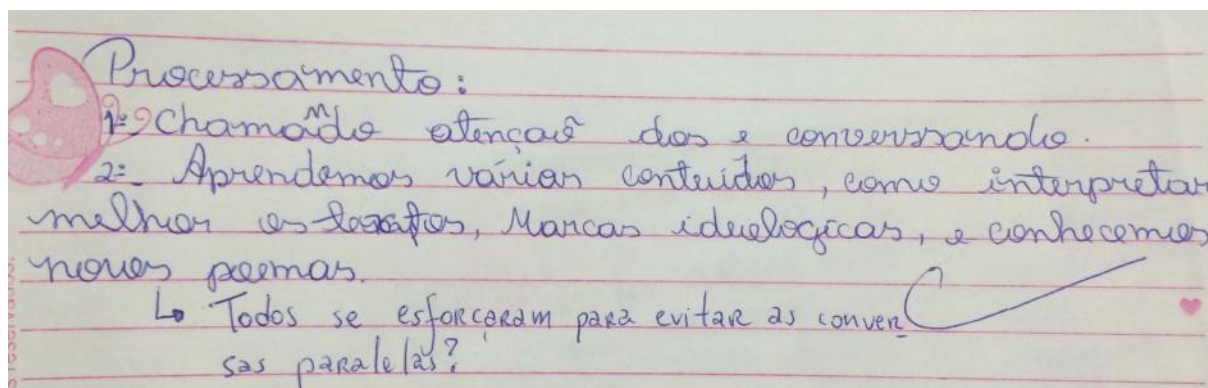 Processamento:
1º Chamando atenção dos e conversando.
2º Aprendemos vários conteúdos, como interpretar
melhor os textos, Marcas ideologicas, e conhecemos
novos poemas.
↳ Todos se esforçaram para evitar as conver
sas paralelas?